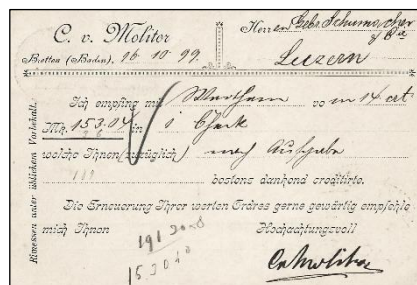 C. v. Moliter
Herren Gebr. Schumacher
& Cie
Bretten (Baden), 16 10 99.
Luzern
Ich empfing mit Werthem vom 14 ct
Mk. 153.04 in 1 Check
welche Ihnen (zuzüglich) nach Aufgabe
bestens dankend creditirte.
Die Erneuerung Ihrer werten Ordres gerne gewärtig empfehle
mich Ihnen Hochachtungsvoll
CvMoliter
Rimessen unter üblichem Vorbehalt.